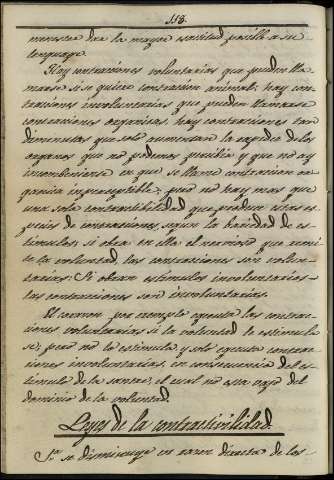 113.
menester dar la mayor esactitud posible a su
lenguage.
Hay contracciones voluntarias que pueden lla
marse si se quiere contraccion animal; hay con
tracciones involuntarias que pueden llamarse
contracciones organicas; hay contracciones tan
diminutas que solo aumentan la rapidez de los
organos que no podemos percibir y que no ay
inconbeniente en que se llame contraccion or
ganica imperceptible; pero no hay mas que
una sola contractibilidad que produce estas es
pecies de contracciones, segun la bariedad de es
timulos; si obra en ella el nervioso que remi
te la voluntad, las contracciones son volun-
tarias: Si obran estimulos involuntarios
las contracciones son involuntarias.
El corazon por exemplo egecuta las contrac-
ciones voluntarias si la voluntad le estimula
se; pero no lo estimula, y solo egecuta contrac
ciones involuntarias, en consecuencia del es
timulo de la sangre, el cual no esta vajo del
dominio de la voluntad.
Leyes de la contractivilidad.
1a. se disminuye en razon directa de los